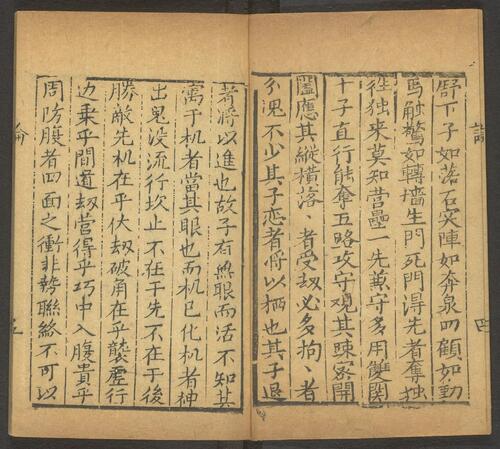 舒下子如落石突陣如奔泉四顧如動
馬触驚如轉墻生門死門得先者奪独
往独来莫知营壘一先兼守多用雙関
十子直行能奪五略攻守覌其踈宻開
闔應其縱橫落、者受刼必多拘、者
不少其子恋者将以栖也其子退
者將以進也故子有無眼而活不知其
寓于机者當其眼也而机已化机者神
出鬼没流行坎止不在于先不在于後
勝敵先机在乎伏刼破角在乎襲虗行
边乗乎間道刼营得乎巧中入腹貴乎
周防腹者四面之衝非勢聯絡不可以